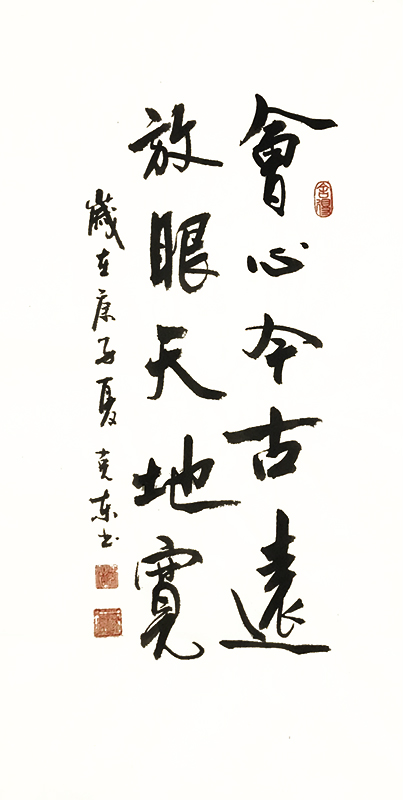 會心今古遠
放眼天地寬
歲在庚子夏 克東书
舍得